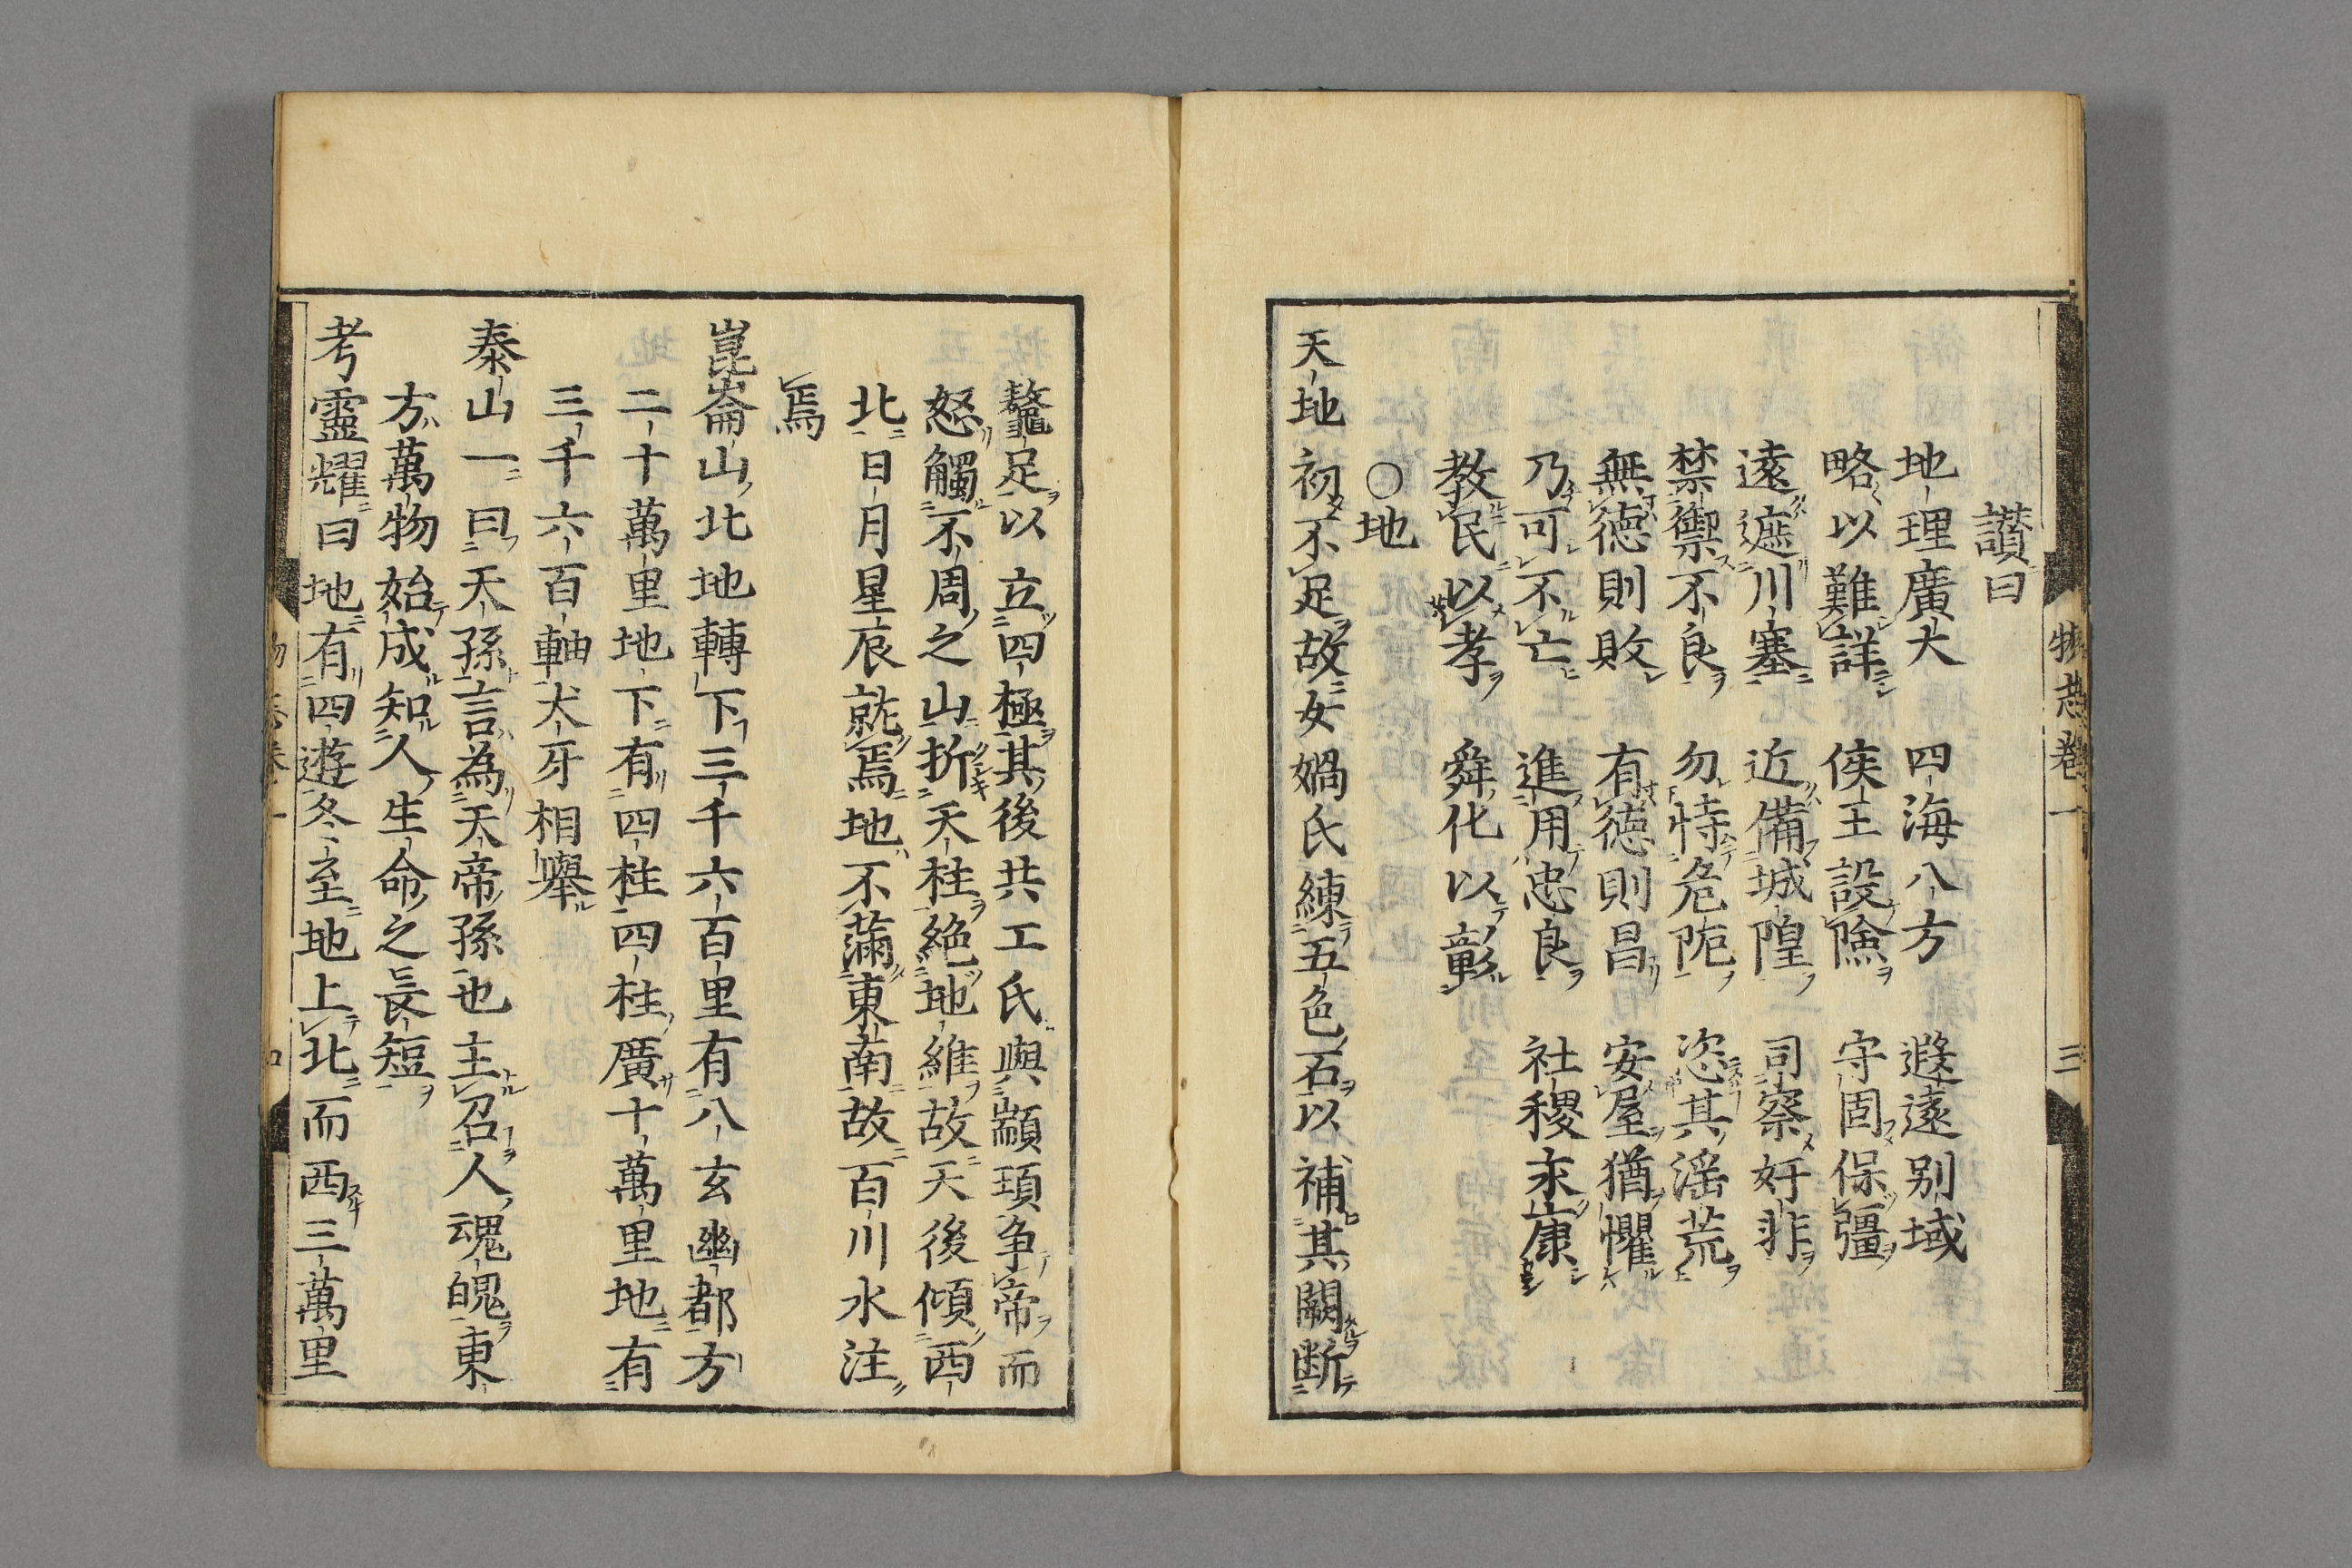 物志卷一 三
讃曰
地理廣大 四海八方 遐遠別域
略以難詳 侯王設險 守固保彊
遠遮川塞 近備城隍 司察奸非
禁禦不良 勿恃危阨 恣其滛荒
無德則敗 有德則昌 安屋猶懼
乃可不亡 進用忠良 社稷永康
教民以孝 舜化以彰
○地
天地初不足故女媧氏練五色石以補其闕断
鼇足以立四極其後共工氏與顓頊争帝而
怒觸不周之山折天柱絶地維故天後傾西
北日月星辰就焉地不滿東南故百川水注
焉
崑崙山北地轉下三千六百里有八玄幽都方
二十萬里地下有四柱四柱廣十萬里地有
三千六百軸犬牙相擧
泰山一曰天孫言為天帝孫也主召人魂魄東
方萬物始成知人生命之長短
考靈耀曰地有四遊冬至地上北而西三萬里